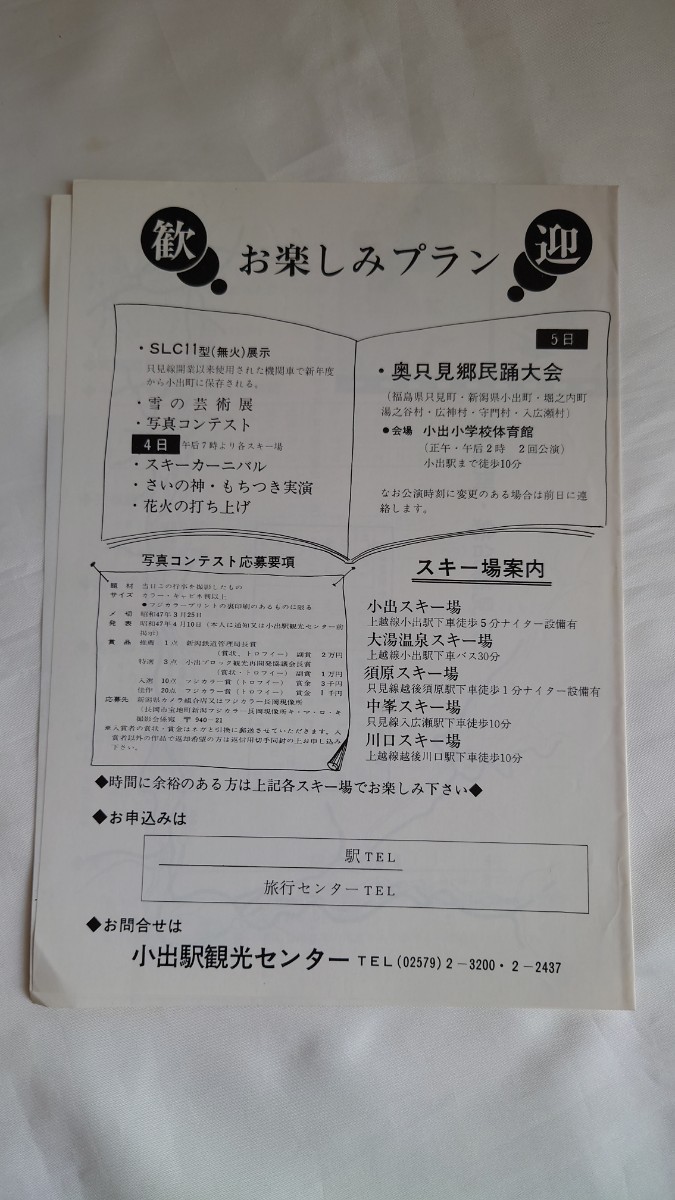 歓
お楽しみプラン
迎
・SLC11型(無火)展示
只見線開業以来使用された機関車で新年度
から小出町に保存される。
・雪の芸術展
・写真コンテスト
4日 午后7時より各スキー場
・スキーカーニバル
・さいの神・もちつき実演
・花火の打ち上げ
5日
・奥只見郷民踊大会
(福島県只見町・新潟県小出町・堀之内町
湯之谷村・広神村・守門村・入広瀬村)
●会場 小出小学校体育館
(正午・午后2時 2回公演)
小出駅まで徒歩10分
なお公演時刻に変更のある場合は前日に連
絡します。
写真コンテスト応募要項
題材 当日この行事を撮影したもの
サイズ カラー・キャビネ判以上
●フジカラープリントの裏印刷のあるものに限る
〆切 昭和47年3月25日
発表 昭和47年4月10日(本人に通知又は小出駅観光センター前
掲示)
賞品 推選 1点 新潟鉄道管理局長賞
(賞状、トロフィー) 副賞 2万円
特選 3点 小出ブロック観光再開発協議会長賞
(賞状・トロフィー) 副賞 1万円
入選 10点 フジカラー賞(トロフィー) 賞金 3千円
佳作 20点 フジカラー賞(トロフィー) 賞金 1千円
応募先 新潟県カメラ組合店又はフジカラー長岡現像所
(長岡市宝地町新潟フジカラー長岡現像所キ・マ・ロ・キ
撮影会係宛 〒940-21
※入賞者の賞状・賞金はネガと引換に郵送させていただきます。入
賞者以外の作品で返却希望の方は返信用切手同封の上お申し込み
下さい。
スキー場案内
小出スキー場
上越線小出駅下車徒歩5分ナイター設備有
大湯温泉スキー場
上越線小出駅下車バス30分
須原スキー場
只見線越後須原駅下車徒歩1分ナイター設備有
中峯スキー場
只見線入広瀬駅下車徒歩10分
川口スキー場
上越線越後川口駅下車徒歩10分
◆時間に余裕のある方は上記各スキー場でお楽しみ下さい◆
◆お申込みは
駅TEL
旅行センターTEL
◆お問合せは
小出駅観光センター TEL(02579)2-3200・2-2437